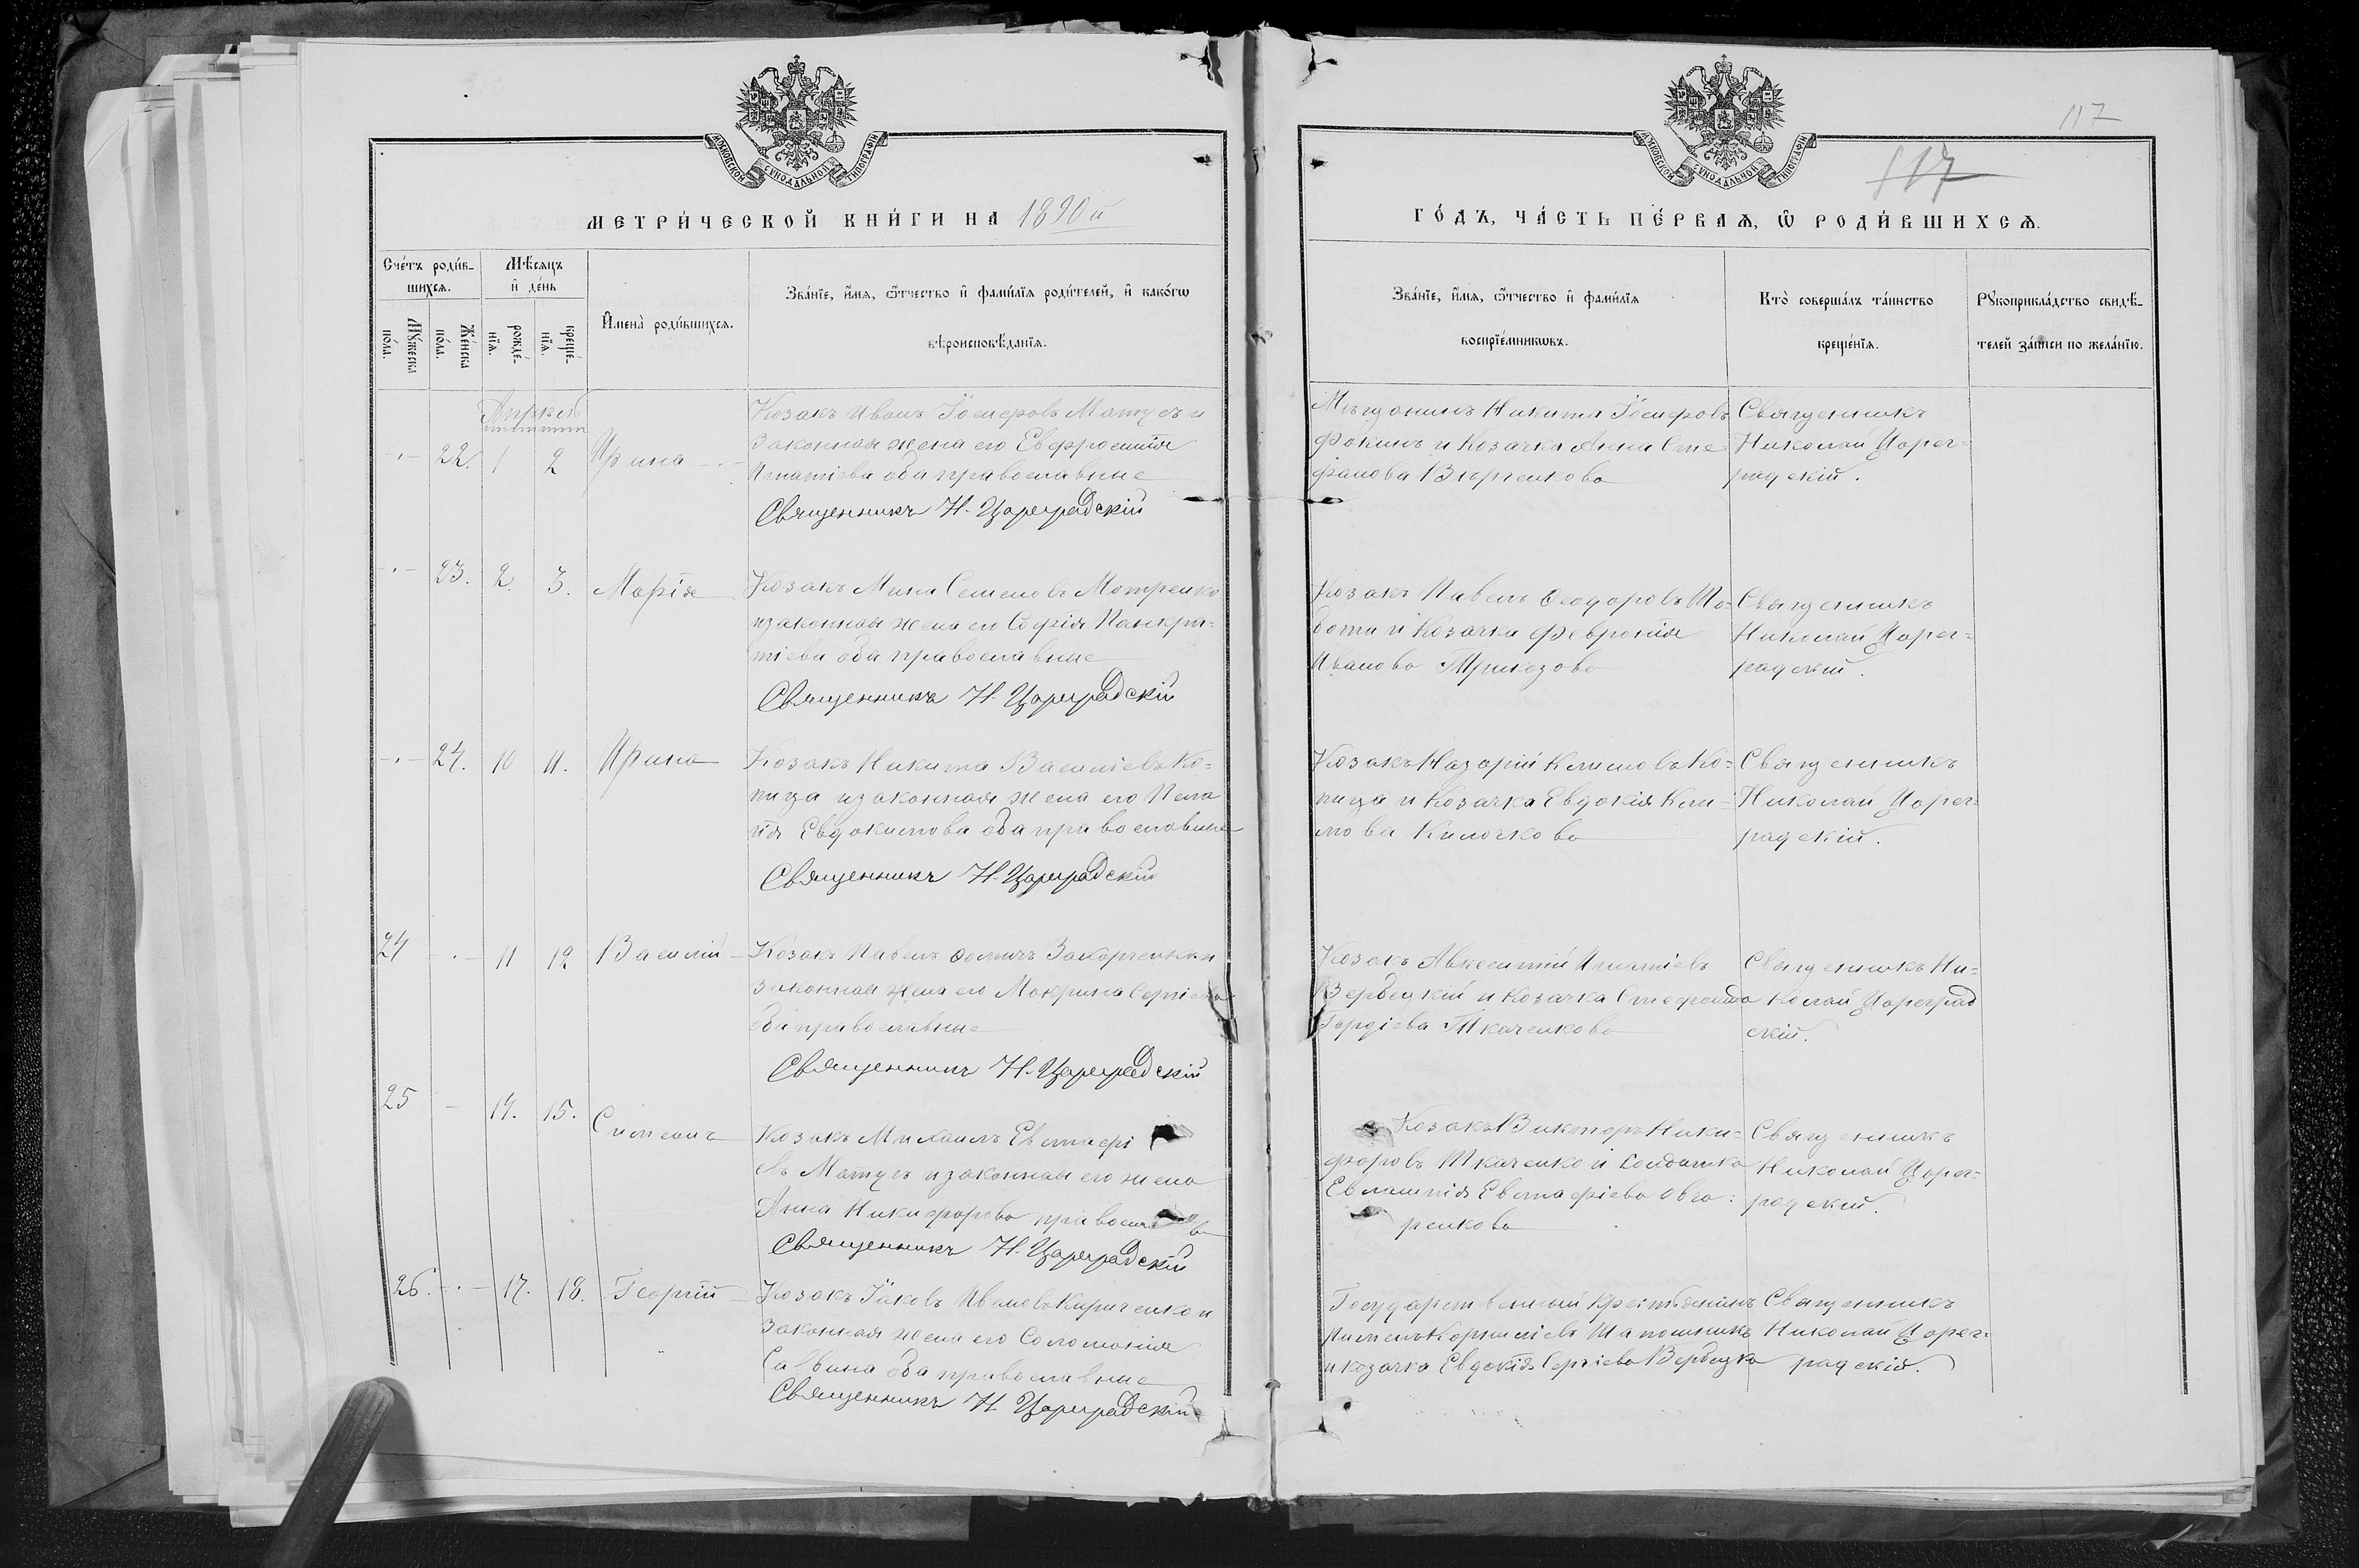 117
117
МОСКОВСКОЙ СѴНОДАЛЬНОЙ ТИПОГРАФІИ
МОСКОВСКОЙ СѴНОДАЛЬНОЙ ТИПОГРАФІИ
МЕТРИ́ЧЕСКОЙ КНИ́ГИ НА 1890й
ГО́ДЪ, ЧА́СТЬ ПЕ́РВАѦ, Ѡ РОДИ́ВШИХСѦ.
Сче́тъ роди́в-
шихсѧ.
Мꙋ́жеска по́ла.
Же́нска по́ла.
Мѣ́сѧцъ и҆ де́нь
рожде́-нїѧ.
креще́-нїѧ.
И҆мена̀ роди́вшихсѧ.
Зва́нїе, и҆́мѧ, ѻ҆́тчество и҆ фами́лїѧ роди́телей, и҆ како́гѡ
вѣроисповѣ́данїѧ.
Зва́нїе, и҆́мѧ, ѻ҆́тчество и҆ фами́лїѧ
воспрїе́мникѡвъ.
Кто̀ соверша́лъ та́инство
креще́нїѧ.
Рꙋкоприкла́дство свидѣ́-
телей за́писи по жела́нїю.
Апрѣль
22. 1 2 Ирина
Козакъ Иванъ Іосифовъ Матусъ и
законная жена его Евфросинія
Игнатіева оба православные
Священникъ Н. Цареградскій
Мѣщанинъ Никита Іосифовъ
Фокинъ и Козачка Анна Сте-
фанова
Священникъ
Николай Царег-
радскій.
23. 2. 3. Марія
Козакъ Мина Семеновъ Матренко
и законная жена его Софія Панкра-
тіева оба православные
Священникъ Н. Цареградскій
Козакъ Павелъ Ѳеодоровъ
и Козачка Февронія
Иванова
Священникъ
Николай Царег-
радскій.
24. 10 11. Ирина
Козакъ Никита Василіевъ Ко-
пица и законная жена его Пела-
гія Евдокимова оба православные
Священникъ Н. Цареградскій
Козакъ Назарій Климовъ Ко-
пица и Козачка Евдокія Кли-
мова
Священникъ
Николай Царег-
радскій.
24 11 12 Василій
Козакъ Павелъ Ѳомичъ Захарченко и
законная жена его Макрина Сергіева
оба православные
Священникъ Н. Цареградскій
Козакъ Авксентій Игнатіевъ
Вербецкій и Козачка Стефанида
Гордіева Ткаченкова
Священникъ Ни-
колай Цареград
скій.
25 14. 15. Симеонъ
Козакъ Михаилъ Евстафі
въ Матусъ и законная его жена
Анна Никифорова
Священникъ Н. Цареградскій
Козакъ Викторъ Ники-
форовъ Ткаченко и солдатка
Евлампія Евстафіева Овча-
ренкова
Священникъ
Николай Царег-
радскій.
26. 17. 18. Георгій
Козакъ Іаковъ Ивановъ Кириченко и
законная жена его Соломонія
Саввина оба православные
Священникъ Н. Цареградскій
Государственный крестьянинъ
Пименъ Корниліевъ Шапошникъ
и козачка Евдокія Сергіева Вербецка
Священникъ
Николай Царег-
радскій.